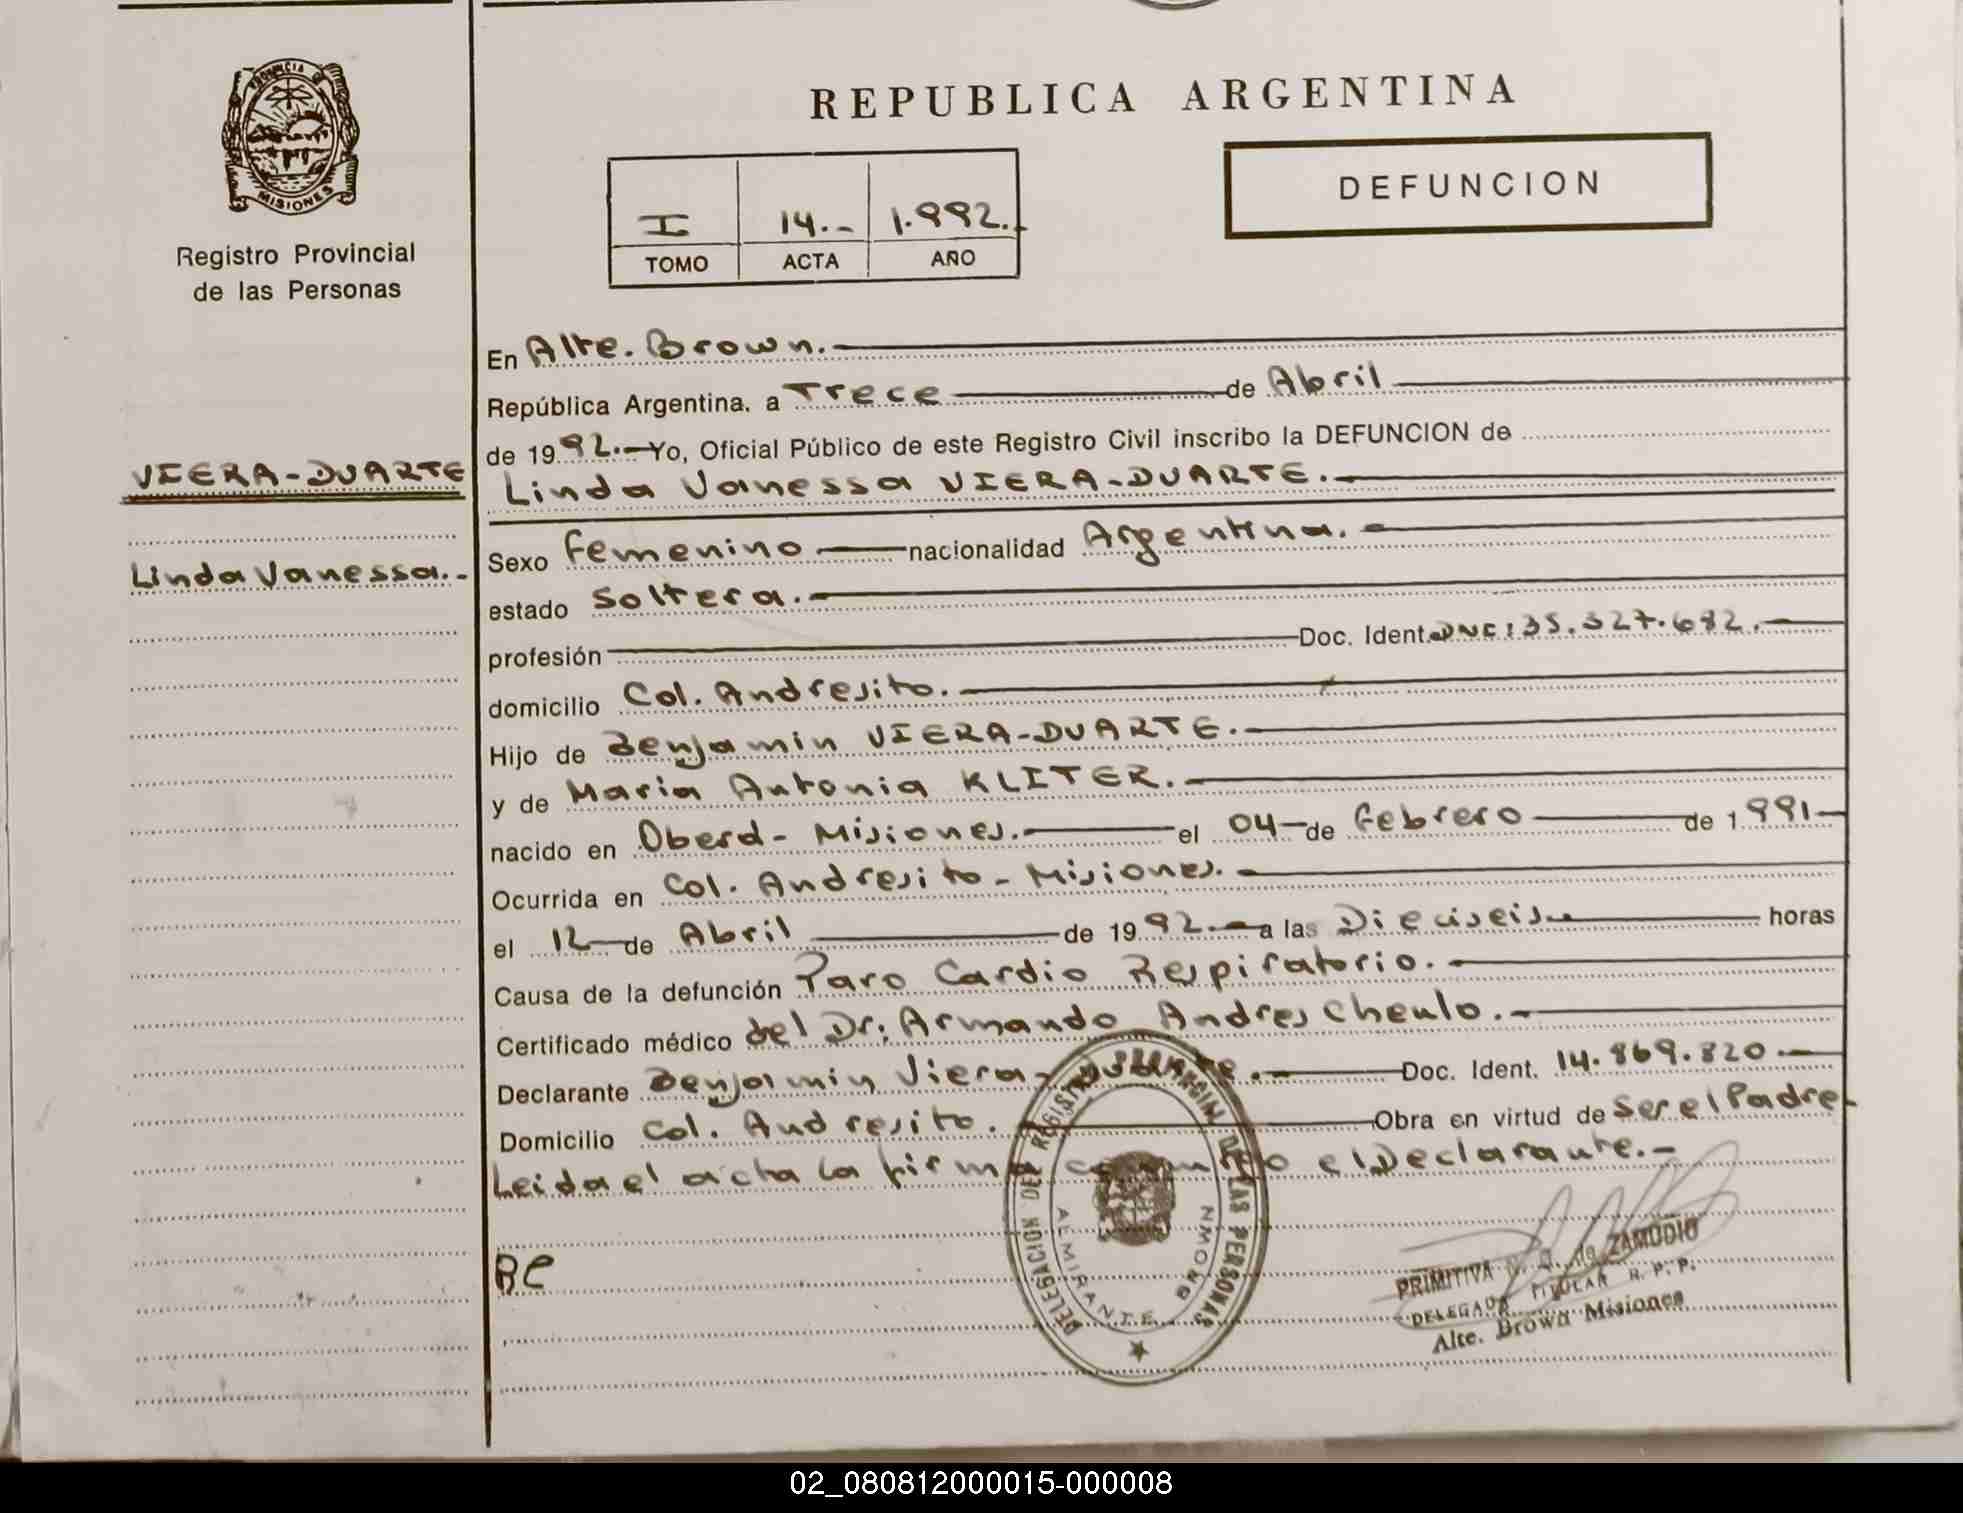 PROVINCIA DE
MISIONES
Registro Provincial
de las Personas
VIERA-DUARTE
Linda Vanessa.-
REPUBLICA ARGENTINA
DEFUNCION
I 14.- 1.992.-
TOMO ACTA AÑO
En Alte. Brown.-
República Argentina. a Trece de Abril
de 1992.- Yo, Oficial Público de este Registro Civil inscribo la DEFUNCION de
Linda Vanessa VIERA-DUARTE.-
Sexo Femenino nacionalidad Argentina.-
estado Soltera.-
profesión Doc. Ident. 35.327.682.-
domicilio Col. Andresito.-
Hijo de Benjamin VIERA-DUARTE.-
y de Maria Antonia KLITER.-
nacido en Oberá- Misiones.- el 04- de Febrero de 1991-
Ocurrida en Col. Andresito - Misiones.-
el 12- de Abril de 1992.- a las Dieciseis.- horas
Causa de la defunción Paro Cardio Respiratorio.-
Certificado médico del Dr. Armando Andres Cheulo.-
Declarante Benjamin Viera-Duarte.- Doc. Ident. 14.869.820.-
Domicilio Col. Andresito. Obra en virtud de Ser el Padre-
Leida el acta la firma conmigo el Declarante.-
DELEGACION DEL REGISTRO PROVINCIAL DE LAS PERSONAS
ALMIRANTE BROWN
PRIMITIVA de ZAMUDIO
DELEGADA TITULAR R. P. P.
Alte. Brown Misiones
02_080812000015-000008